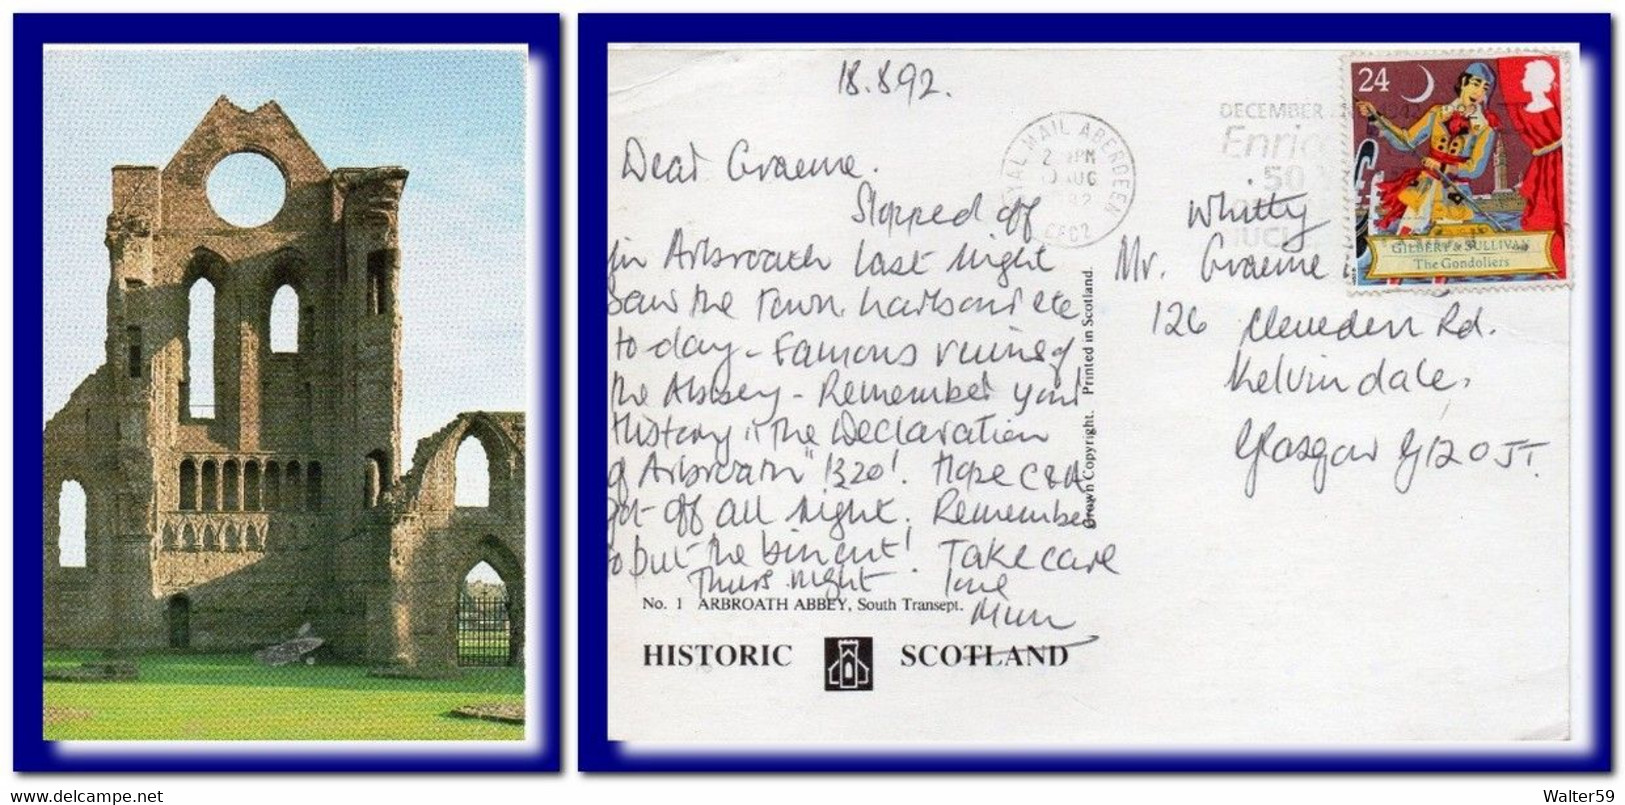 18.8.92.
Dear Graeme.
Stopped off
in Arbroath last night
Saw the town, harbour etc
to-day - Famous ruins of
the Abbey - Remember your
History "The Declaration
of Arbroath" 1320! Hope C&A
got off all night. Remember
to put the bin out!
Thurs. night
Take care
love
Mum
No. 1 ARBROATH ABBEY, South Transept.
HISTORIC SCOTLAND
Crown Copyright. Printed in Scotland.
ROYAL MAIL ABERDEEN
PM
AUG
DECEMBER
Enric
50
24
GILBERT & SULLIVAN
The Gondoliers
Whitty
Mr. Graeme
126 Cleveden Rd.
Kelvindale,
Glasgow G12 0JT.
delcampe.net
Walter59